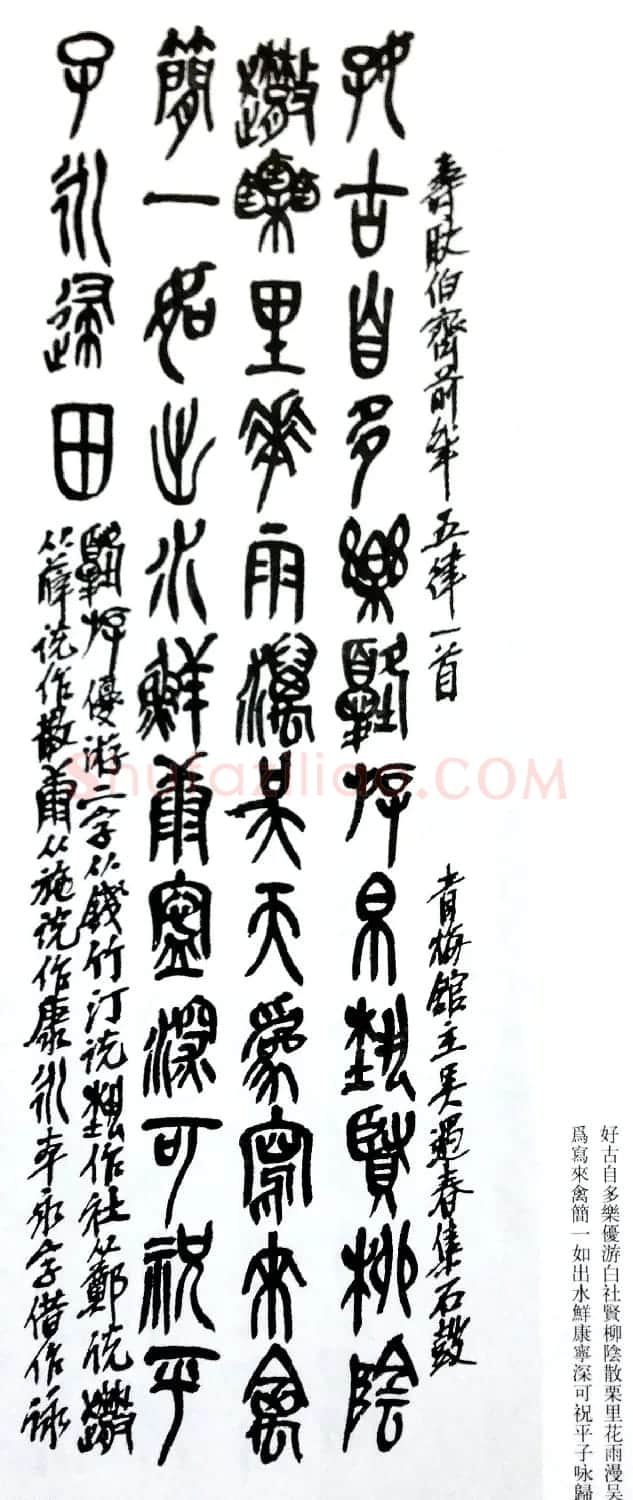 壽伯齊前輩五律一首
青梅館主吳遇春集石鼓
好古自多樂優游白社賢柳陰
散栗里花雨漫吳天爲寫來禽
簡一如出水鮮康寧深可祝平
子永歸田
優游二字从錢竹汀說作社从鄭說
从薛說作散从施說作康永本永字借作詠
好古自多樂優游白社賢柳陰散栗里花雨漫吴
爲寫來禽簡一如出水鮮康寧深可祝平子咏歸
Shufaziliao.COM